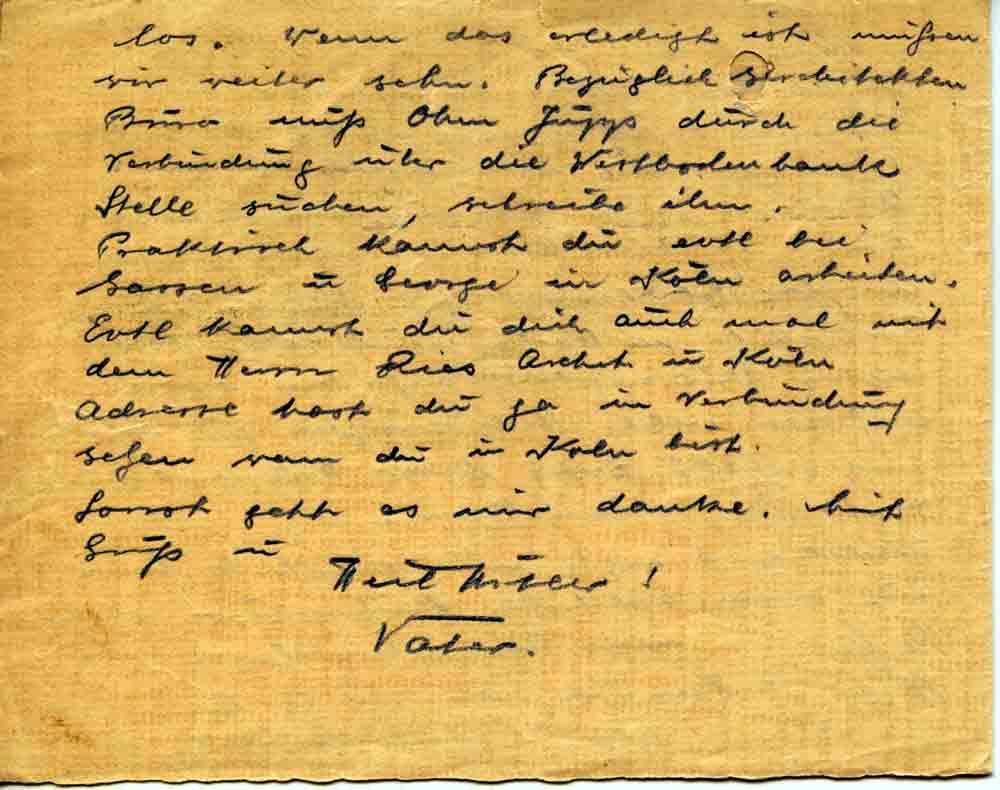 los. Wenn das erledigt ist müssen
wir weiter sehn. Bezüglich Architekten
Büro muß Ohm Jupp durch die
Verbindung über die Westbodenbank
Stelle suchen, schreibe ihm.
Praktisch kannst du evtl bei
Sassen u George in Köln arbeiten.
Evtl kannst du dich auch mal mit
dem Herrn Ries Archt in Köln
Adresse hast du ja in Verbindung
setzen wann du in Köln bist.
Sonst geht es mir danke. Mit
Gruß u
Heil Hitler!
Vater.